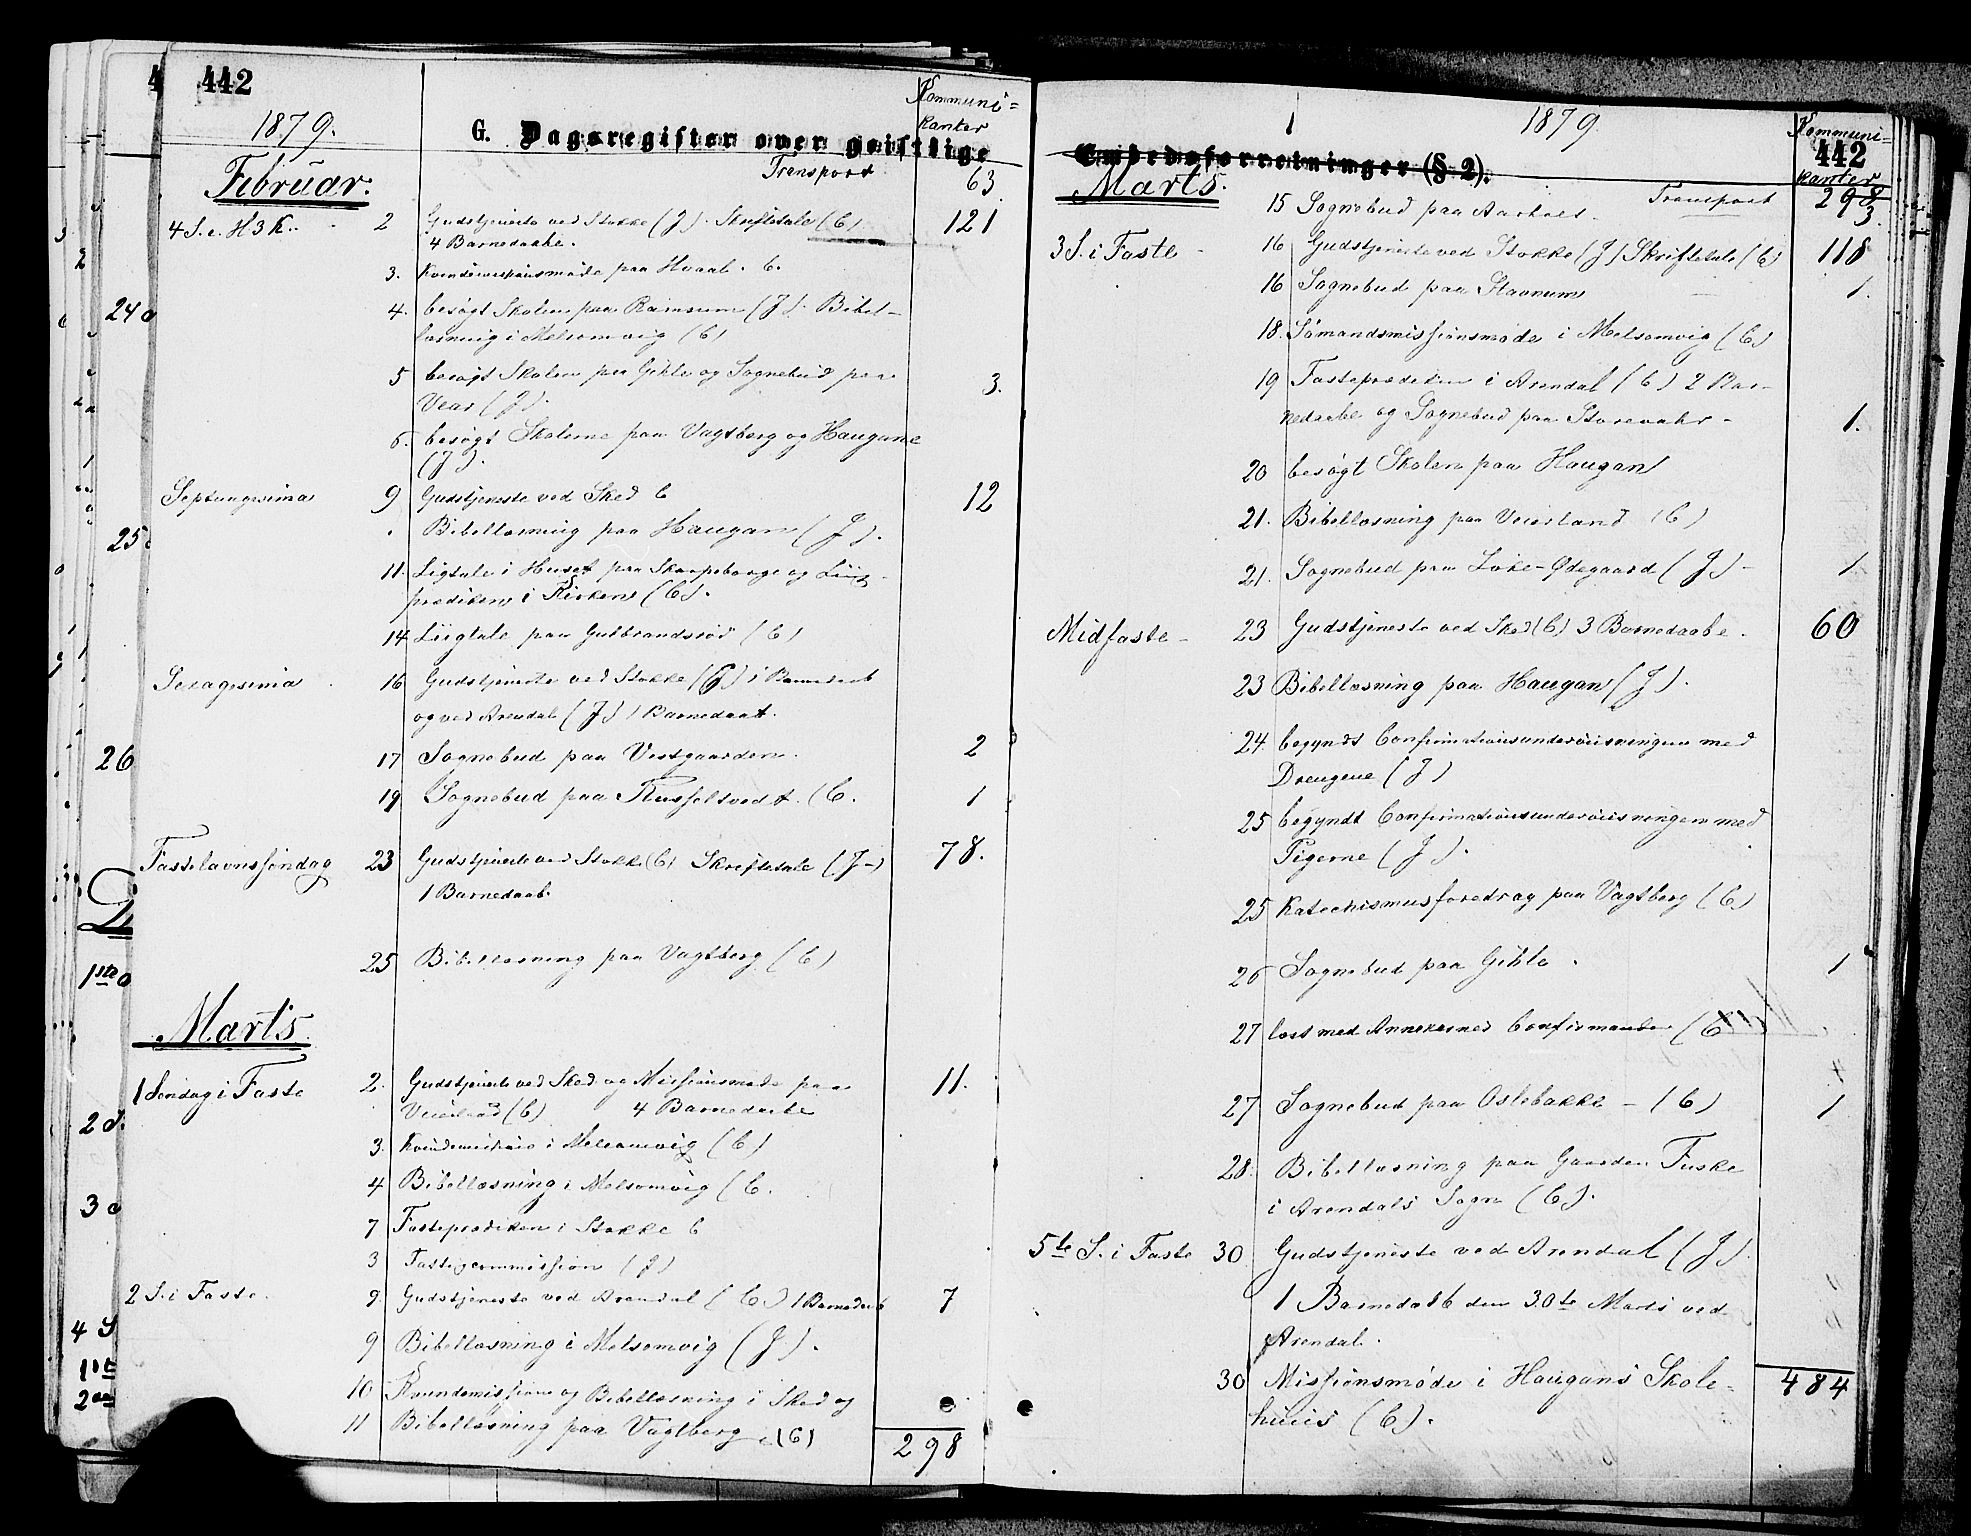 442
1879.
G. Dagsregister over geistlige
Kommuni=
kanter
Februar.
Transport
63.
4 S. e. H3K.
2
Gudstjeneste ved Stokke (J). Skriftetale (C)
121
4 Barnedaabe.
3. Kvindemissionsmøde paa Hvaal. C.
4. besøgt Skolen paa Ramsum (J). Bibel-
læsning i Melsomvig (C)
5 besøgt Skolen paa Gihle og Sognebud paa
3.
Vear (J).
6. besøgt Skolerne paa Vagtberg og Haugane
(J).
Septuagesima
9 Gudstjeneste ved Sked C
12
Bibellæsning paa Haugan (J).
11. Ligtale i Huset paa Skorpeborge og Liig-
prædiken i Kirken (C).
14 Liigtale paa Gulbrandsrød (C)
Sexagesima
16 Gudstjeneste ved Stokke (J) 1 Barnedaab
og ved Arendal (J) 1 Barnedaab.
17 Sognebud paa Vestgaarden.
2
19 Sognebud paa Russeltvedt. (C.
1
Fastelavnssøndag
23 Gudstjeneste ved Stokke (C) Skriftetale (J)
78.
1 Barnedaab.
25 Bibellæsning paa Vagtberg (C)
Marts.
1 Søndag i Faste
2. Gudstjeneste ved Sked og Missionsmøde paa
11.
Veierland (C) 4 Barnedaabe
3. Kvindemission i Melsomvig (C)
4 Bibellæsning i Melsomvig (C.
7 Fasteprædiken i Stokke C
3 Fattigcommission (J)
2 S. i Faste.
9. Gudstjeneste ved Arendal (C.) 1 Barnedaab
7
9 Bibellæsning i Melsomvig (J).
10 Kvindemission og Bibellæsning i Sked og
11 Bibellæsning paa Vagtberg (C)
298
24
25
26
1ste
2 S.
3
4 S
11te
2
1879.
Embedsforretninger (§ 2).
Kommuni-
442
kanter
Marts.
Transport
298
15 Sognebud paa Aarholt.
3.
3 S. i Faste
16 Gudstjeneste ved Stokke (J) Skriftetale (C)
118
16 Sognebud paa Stavnum
1.
18. Sømandsmissionsmøde i Melsomvig (C)
19 Fasteprædiken i Arendal (C) 2 Bar-
nedaabe og Sognebud paa Storevahr-
1.
20 besøgt Skolen paa Haugan
21. Bibellæsning paa Veierland (C)
21. Sognebud paa Løke-Ødegaard (J)
1
Midfaste
23 Gudstjeneste ved Sked (C) 3 Barnedaabe.
60
23 Bibellæsning paa Haugan (J).
24 begyndt Confirmationsunderviisningen med
Drengene (J)
25 begyndt Confirmationsunderviisningen med
Pigerne (J).
25 Katechismusforedrag paa Vagtberg (C)
26 Sognebud paa Gihle.
1
27 læst med Annexernes Confirmander (C
27 Sognebud paa Oslebakke - (C)
1
28. Bibellæsning paa Gaarden Fuske
i Arendals Sogn (C).
5te S. i Faste
30 Gudstjeneste ved Arendal (J).
1 Barnedaab den 30te Marts ved
Arendal.
30 Missionsmøde i Haugans Skole-
484
huus (C).